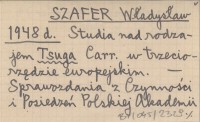 SZAFER Władysław
1948 d. Studia nad rodza-
jem Tsuga Carr. w trzecio-
rzędzie europejskim. —
Sprawozdania z Czynności
i Posiedzeń Polskiej Akademii